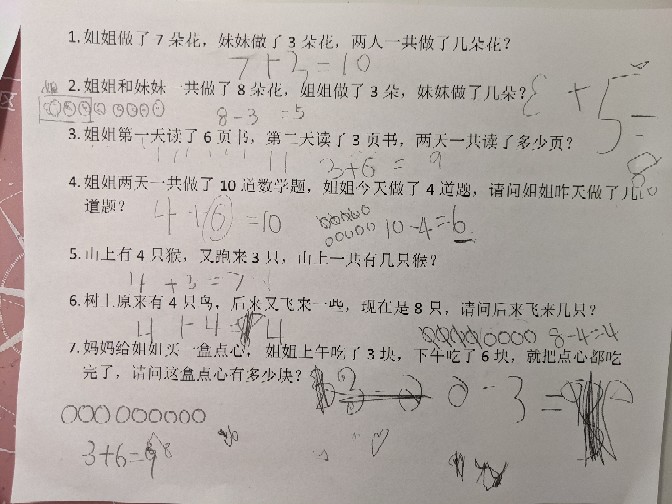 1. 姐姐做了 7 朵花，妹妹做了 3 朵花，两人一共做了几朵花？
7 + 3 = 10
2. 姐姐和妹妹一共做了 8 朵花，姐姐做了 3 朵，妹妹做了几朵？
8 - 3 = 5
3 + 5 = 8
3. 姐姐第一天读了 6 页书，第二天读了 3 页书，两天一共读了多少页？
3+6 = 9
4. 姐姐两天一共做了 10 道数学题，姐姐今天做了 4 道题，请问姐姐昨天做了几
道题？
4 + 6 = 10
10 - 4 = 6
5. 山上有 4 只猴，又跑来 3 只，山上一共有几只猴？
4 + 3 = 7
6. 树上原来有 4 只鸟，后来又飞来一些，现在是 8 只，请问后来飞来几只？
4 + 4 = 4
8-4=4
7. 妈妈给姐姐买一盒点心，姐姐上午吃了 3 块，下午吃了 6 块，就把点心都吃
完了，请问这盒点心有多少块？
0 - 3 =
3+6=9